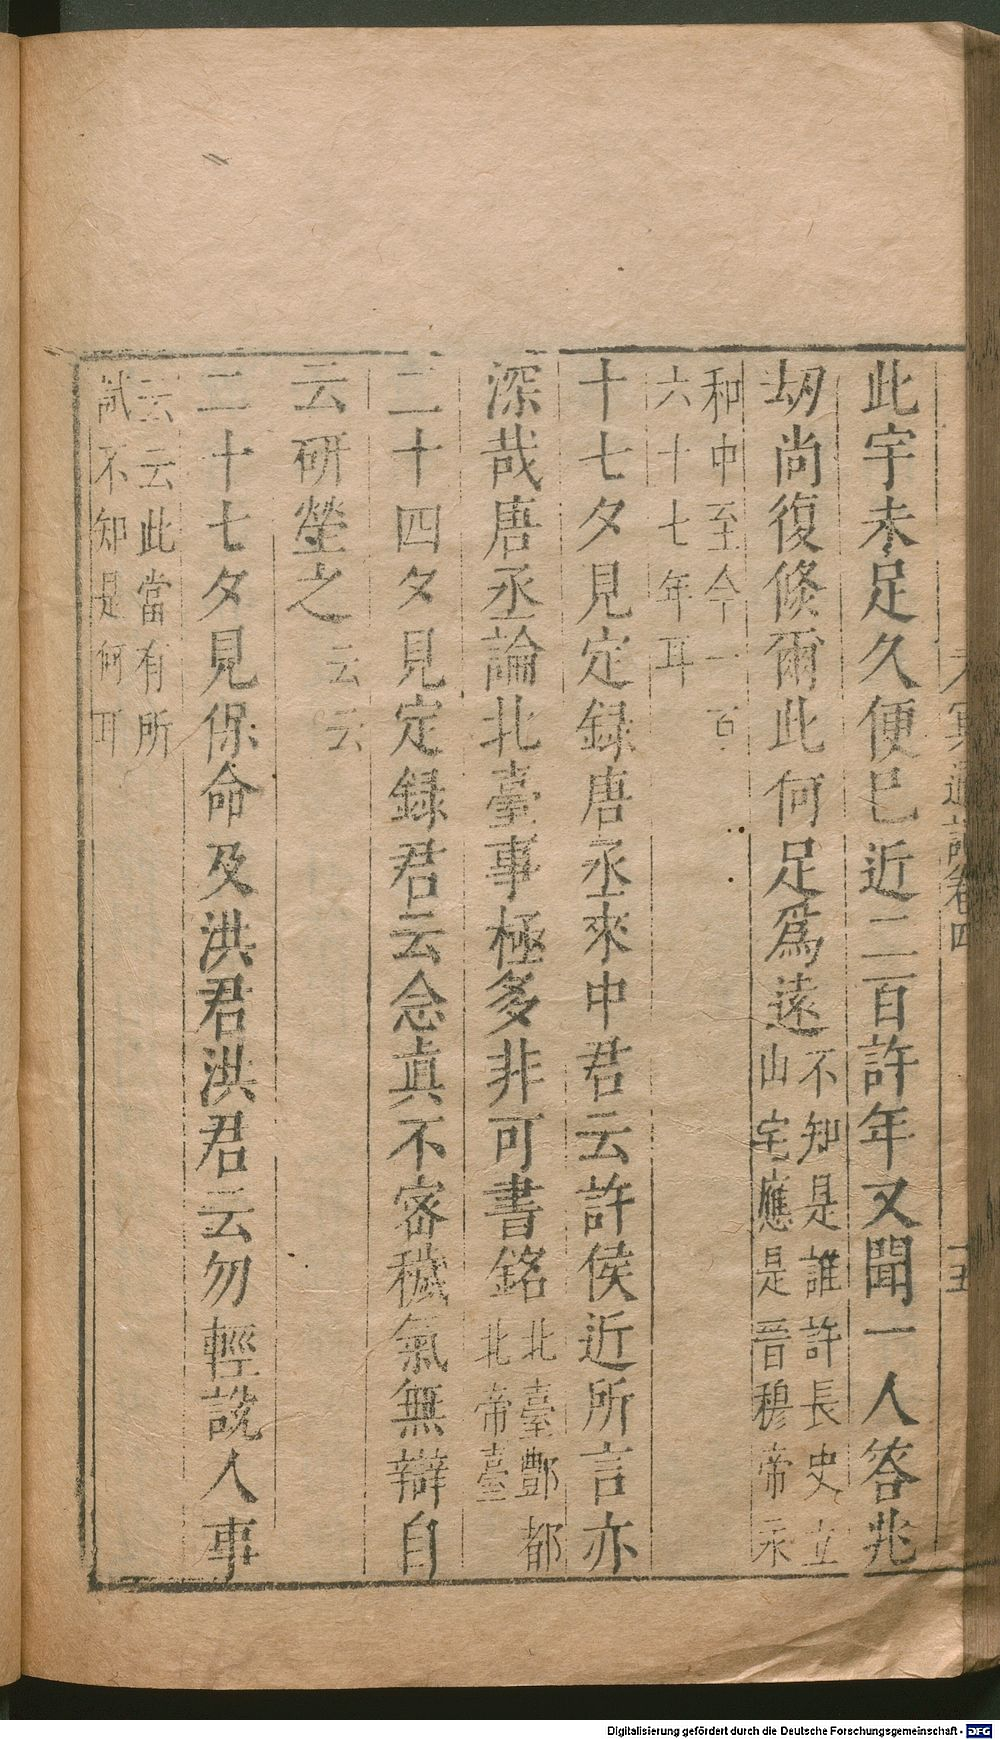 冥通記卷四
此宇未足久便已近二百許年又聞一人答兆
劫尚復倏爾此何足爲遠不知是誰許長史立
山宅應是晉穆帝永
和中至今一百
六十七年耳
十七夕見定録唐丞來中君云許侯近所言亦
深哉唐丞論北臺事極多非可書銘北臺酆都
北帝臺
二十四夕見定録君云念眞不密穢氣無辯自
云研瑩之云云
二十七夕見保命及洪君洪君云勿輕説人事
云云此當有所
試不知是何耳
Digitalisierung gefördert durch die Deutsche Forschungsgemeinschaft - DFG